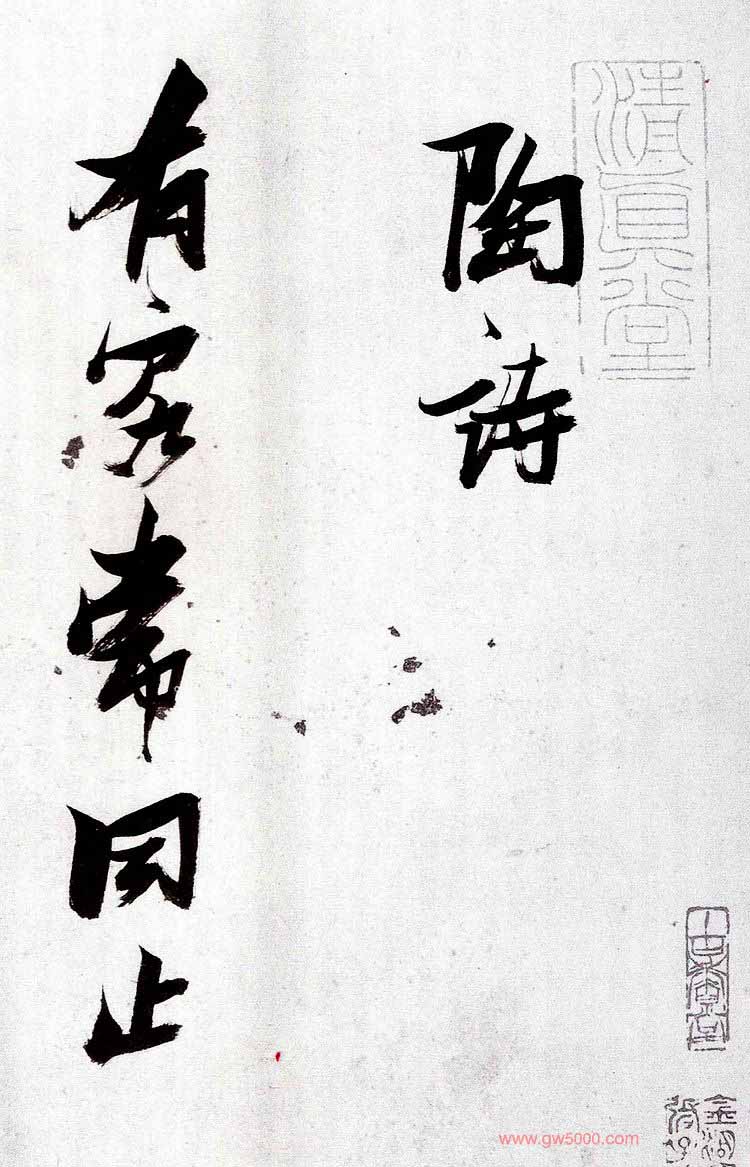 陶诗
有客常同止
清真堂
www.gw5000.com